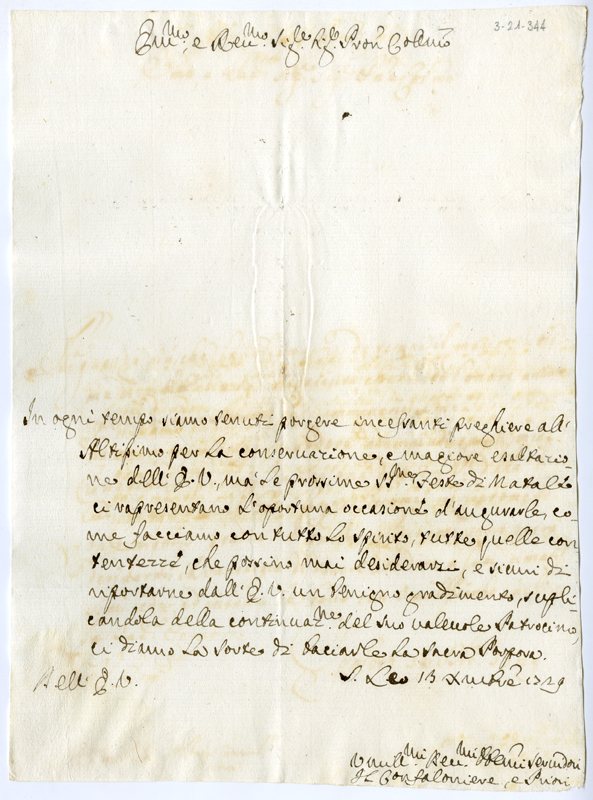 3-21-344
Em.mo, e Rev.mo Sig.re Sig.re Pron Collmo
In ogni tempo siamo tenuti porgere incessanti preghiere all'
Altissimo per la conservazione, e magiore esaltazio-
ne dell' E. V., ma le prossime SS.me Feste di Natale
ci rapresentano l'oportuna occasione d'augurarle, co-
me facciamo con tutto lo spirito, tutte quelle con
tentezze, che possino mai desiderarsi, e sicuri di
riportarne dall' E. V. un benigno gradimento, supli-
candola della continuaz.ne del suo valevole Patrocinio,
ci diamo la sorte di baciarle la Sacra Porpora.
Dell' E. V. S. Leo 13 Xmbre 1729
Umill.mi Dev.mi Obbmi Servidori
Il Confaloniere, e Priori